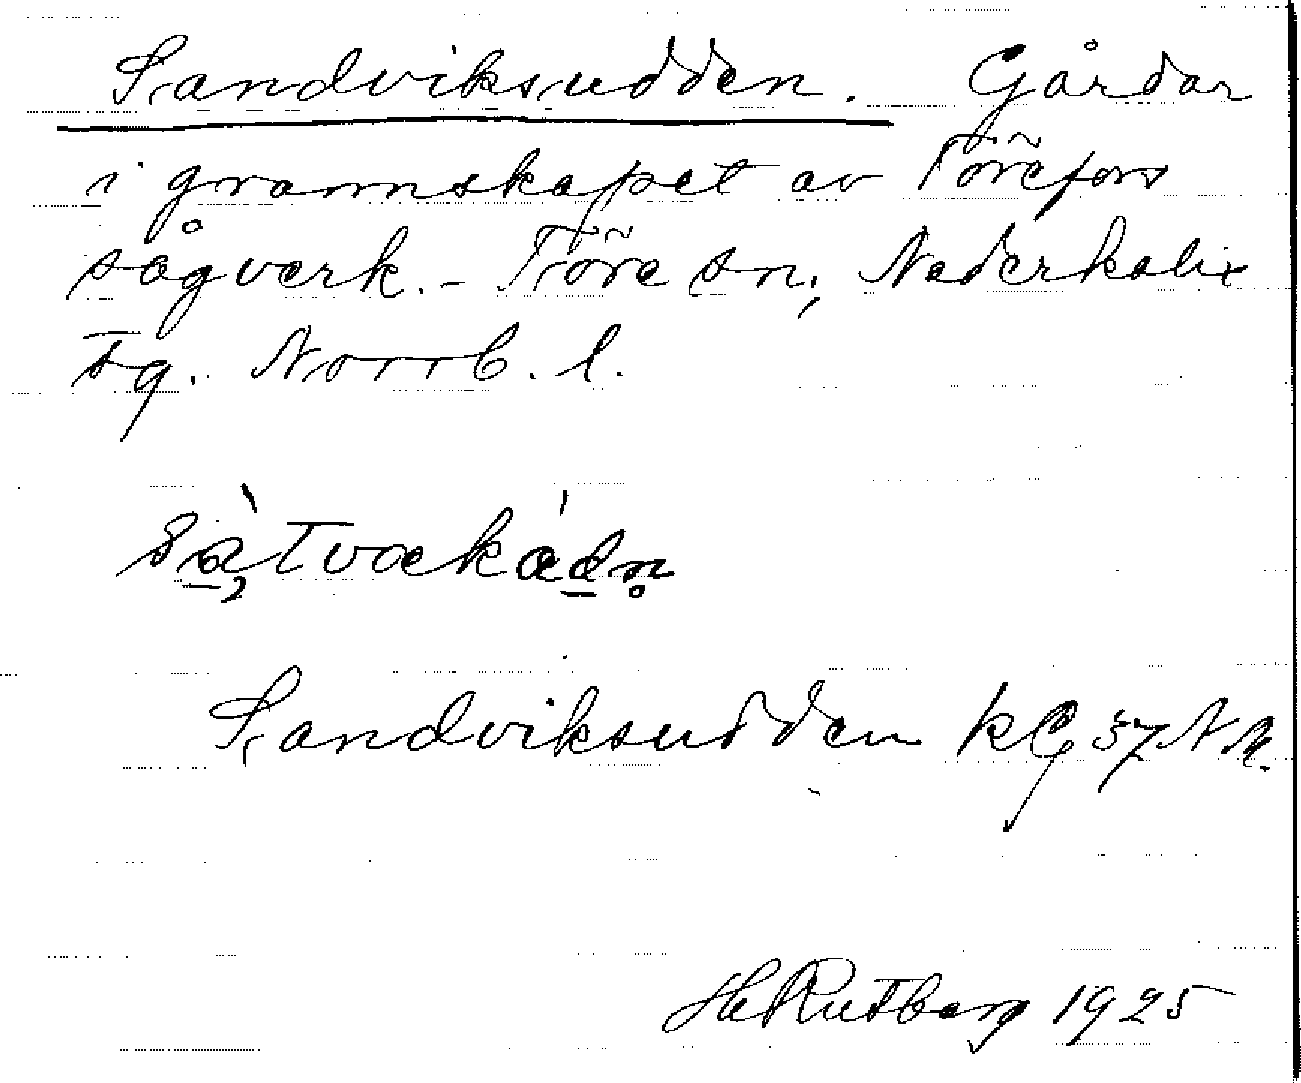 Sandviksudden. Gårdar
i grannskapet av Törefors
sågverk. - Töre sn, Nederkalix
tg. Norrb. l.
Sandviksudden kG 37 NM.
H Rutberg 1925